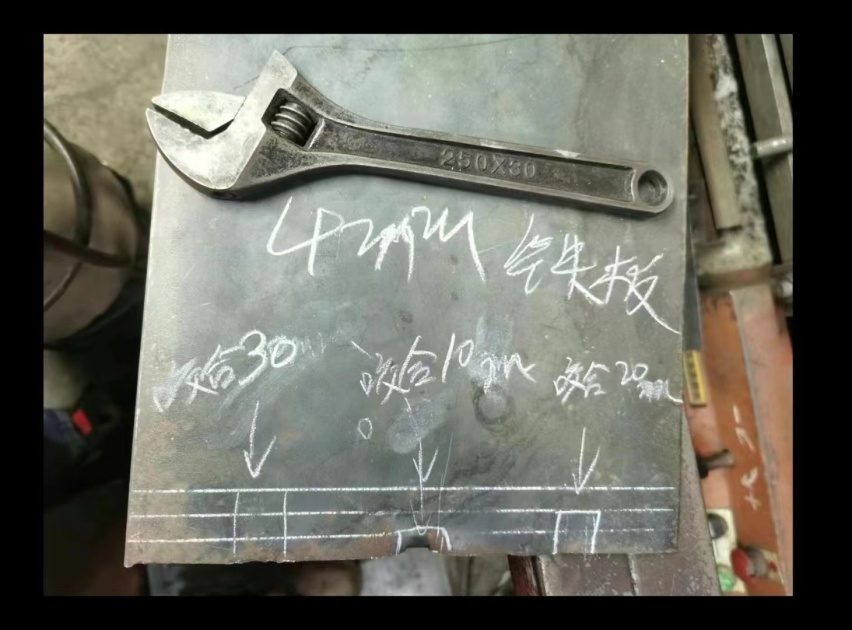 250X30
4mm 铁板
咬合30mm 咬合10mm 咬合20mm